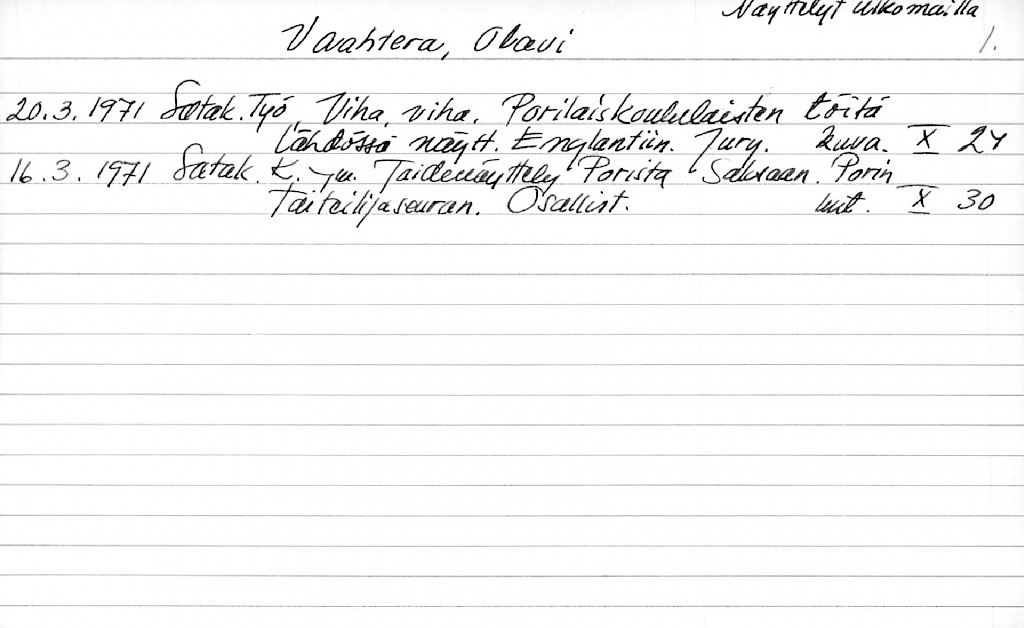 Näyttelyt ulkomailla
Vaahtera, Olavi 1.
20.3.1971 Satak. Työ, Viha, viha. Porilaiskoululaisten töitä
lähdössä näytt. Englantiin. Jury. kuva. X 24
16.3.1971 Satak. K. -ju. Taidenäyttely Porista Saksaan. Porin
Taiteilijaseuran. Osallist. X 30